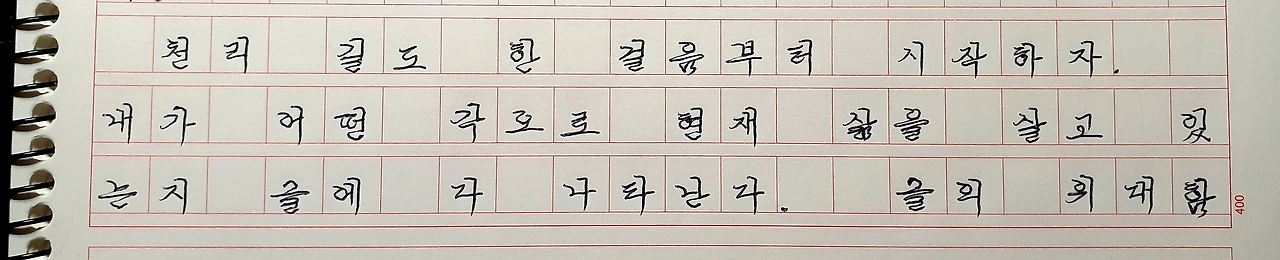 천리 길도 한 걸음부터 시작하자.
내가 어떤 각도로 현재 삶을 살고 있
는지 글에 다 나타난다. 글의 위대함
400